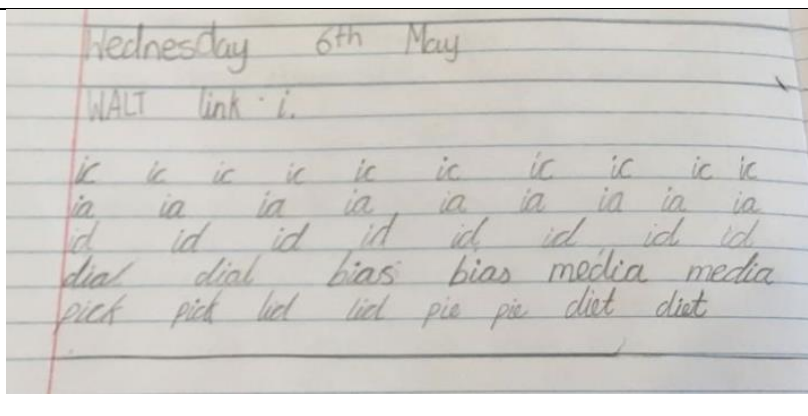 Wednesday 6th May
WALT link i.
ic ic ic ic ic ic ic ic ic ic
ia ia ia ia ia ia ia ia ia
id id id id id id id id
dial dial bias bias media media
pick pick lid lid pie pie diet diet